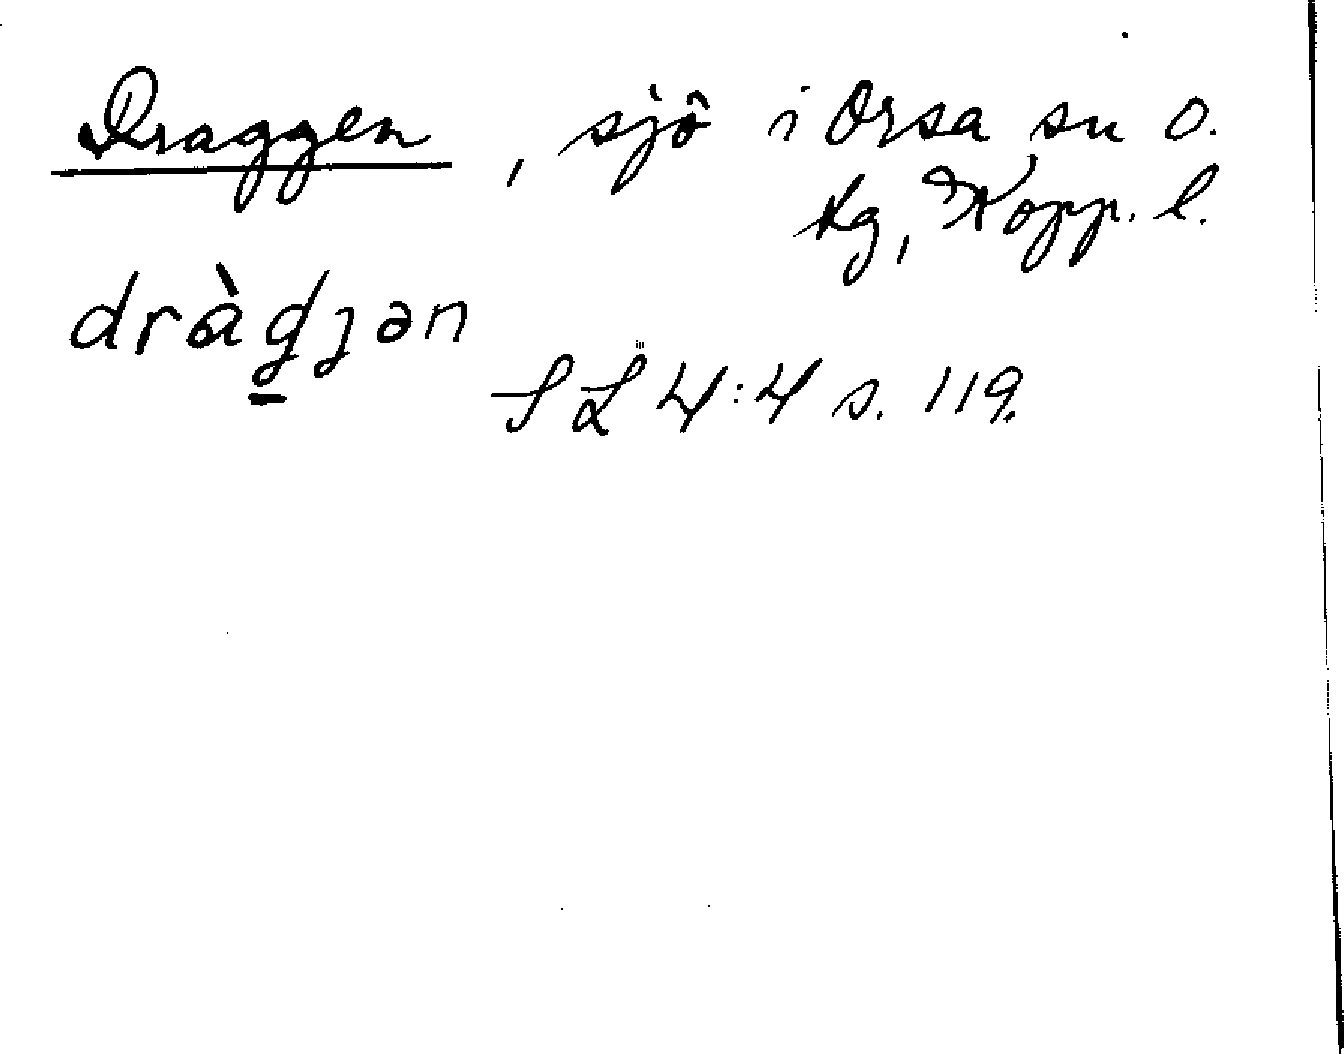 Draggen, sjö i Orsa sn o.
kg, Kopp. l.
dràgɟən
SL 4:4 s. 119.